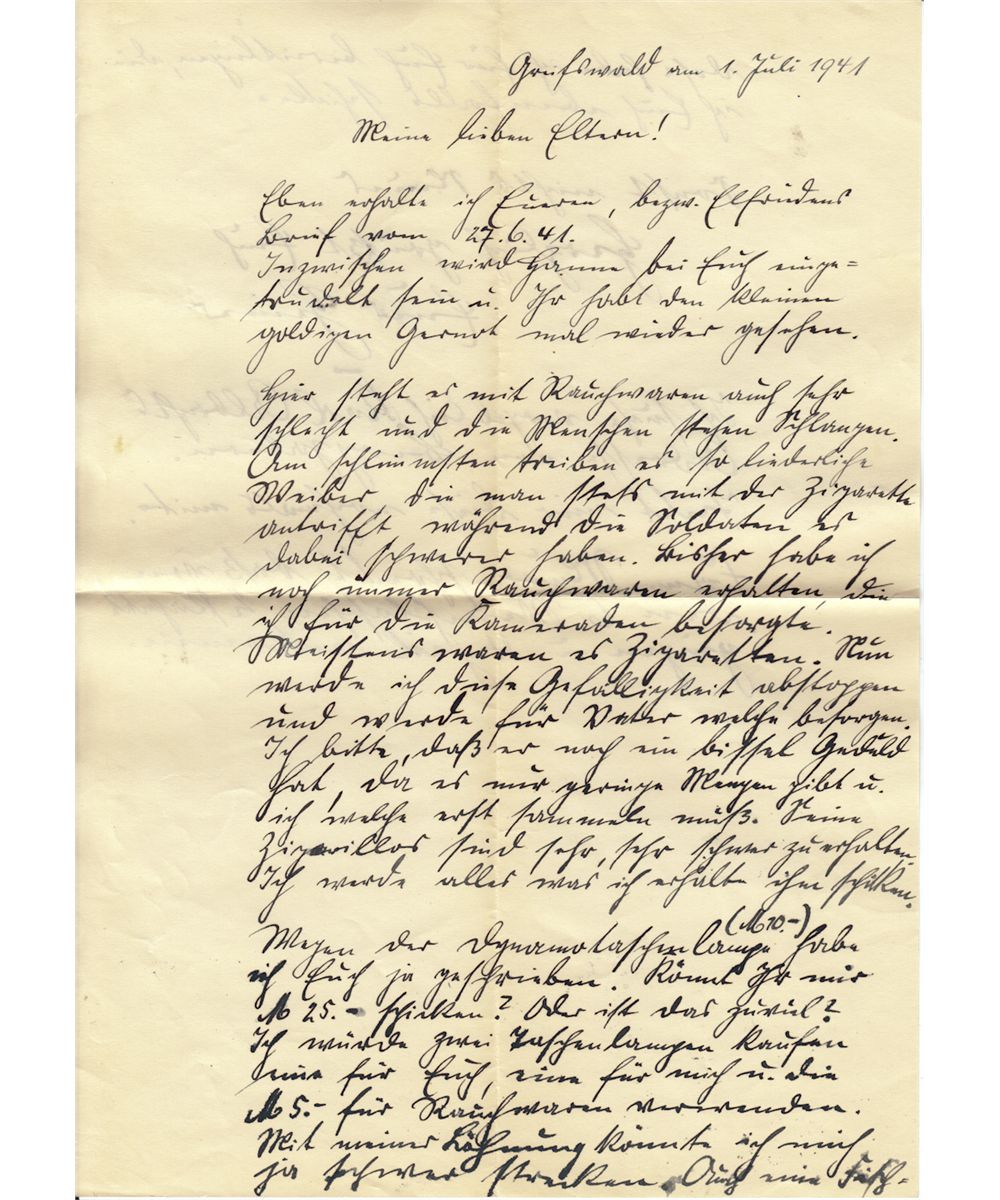 Greifswald am 1. Juli 1941
Meine lieben Eltern!
Eben erhalte ich Eueren, bezw. Elfriedens
Brief vom 27.6.41.
Inzwischen wird Hanne bei Euch einge=
trudelt sein u. Ihr habt den kleinen
goldigen Gernot mal wieder gesehen.
Hier steht es mit Rauchwaren auch sehr
schlecht und die Menschen stehen Schlangen.
Am schlimmsten treiben es so liederliche
Weiber, die man stets mit der Zigarette
antrifft während die Soldaten es
dabei schwerer haben. Bisher habe ich
noch immer Rauchwaren erhalten, die
ich für die Kameraden besorgte.
Meistens waren es Zigaretten. Nun
werde ich diese Gefälligkeit abstoppen
und werde für Vater welche besorgen.
Ich bitte, daß er noch ein bissel Geduld
hat, da es nur geringe Mengen gibt u.
ich welche erst sammeln muß. Seine
Zigarillos sind sehr, sehr schwer zu erhalten.
Ich werde alles was ich erhalte ihm schicken.
(M 10.-)
Wegen der Dynamotaschenlampe habe
ich Euch ja geschrieben. Könnt Ihr mir
M 25.- schicken? Oder ist das zuviel?
Ich würde zwei Taschenlampen kaufen
eine für Euch, eine für mich u. die
M 5.- für Rauchwaren verwenden.
Mit meiner Löhnung könnte ich mich
ja schwer strecken. Auch eine